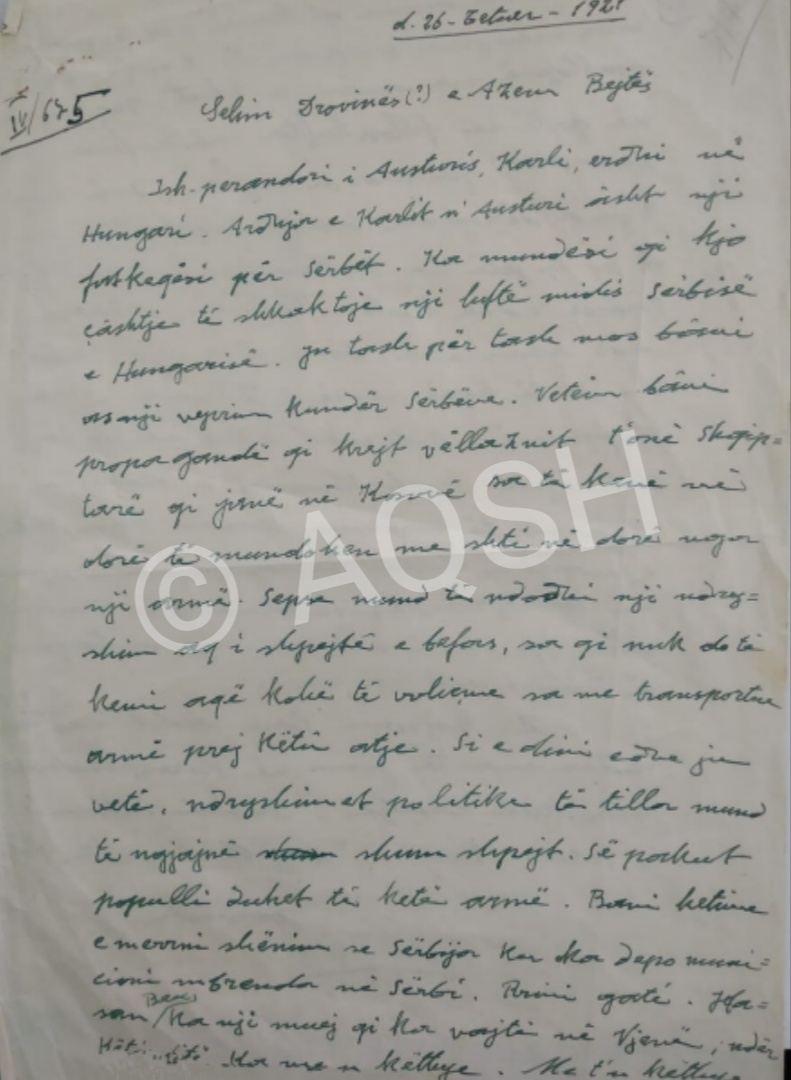 d. 26 - Tetuer - 1921
IV/675
Selim Drovinës(?) e Azem Bejtës
Ish-perandori i Austuris, Karli, erdhi në
Hungari. Ardhja e Karlit n'Austuri âsht nji
fatkeqësi për Sërbët. Ka mundësi qi kjo
çâshtje të shkaktoje nji luftë midis Sërbisë
e Hungarisë. Ju tash për tash mos bâni
asnji veprim kundër Sërbëve. Vetëm bâni
propagandë qi krejt vëllaznit t'onë Shqip=
tarë qi janë në Kosovë sa të kenë në
dorë të mundohen me shti në dorë nga
nji armë. Sepse mund të ndodhi nji ndry=
shim aq i shpejtë e befas, sa qi nuk do të
kemi aqë kohë të volitme sa me transportue
armë prej këtû atje. Si e dini edhe ju
vetë, ndryshimet politike të tilla mund
të ngjajnë shum shpejt. Së paku
populli duhet të ketë armë. Bani hetime
e merrni shënim se Sërbija ku ka depo muni=
cioni mbrenda në Sërbi. Rrini gati. Ha=
san Beu ka nji muej qi ka vajtë në Vjenë, ndër
Ka me u këthye. Me t'u këthye
© AQSH